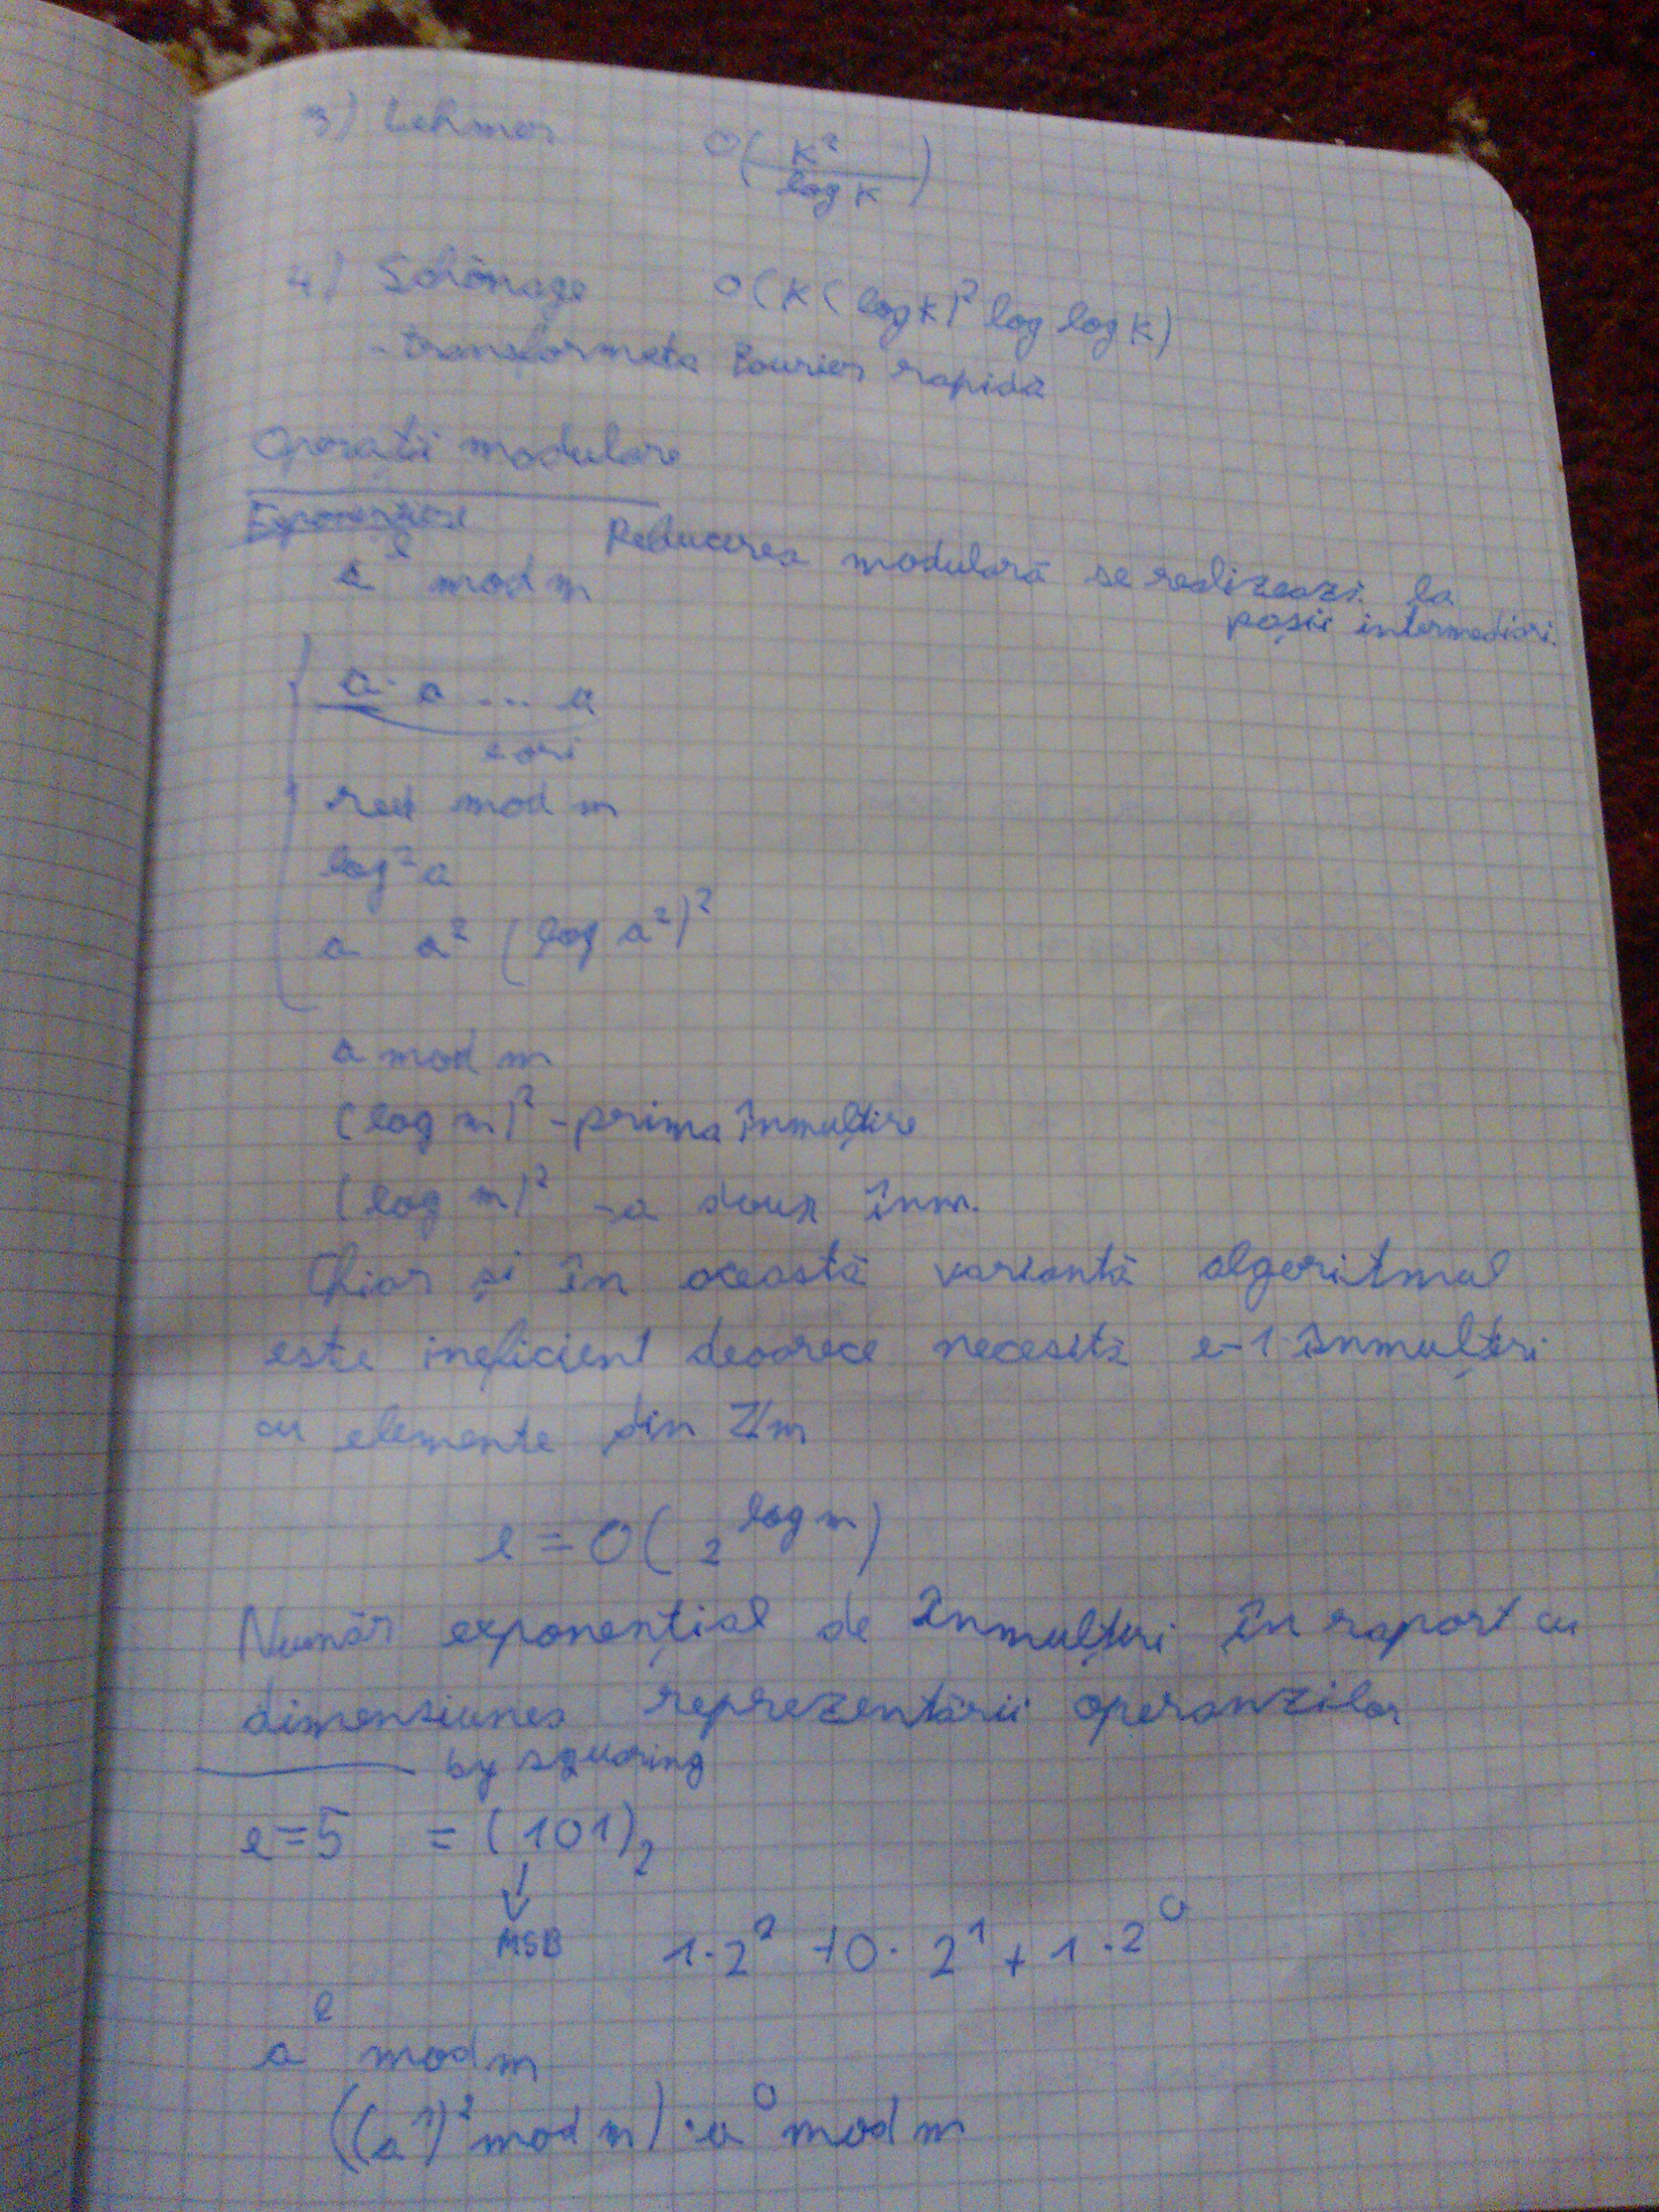 3) Lehmer O(k²/log k)
4) Schönage O(k(log k)² log log k)
- transformata Fourier rapidă
Operații modulare
Exponențiere
a^e mod m Reducerea modulară se realizează la
pașii intermediari.
a · a ... a
e ori
red mod m
log² a
a a² (log a²)²
a mod m
(log m)² - prima înmulțire
(log m)² - a doua înm.
Chiar și în această variantă algoritmul
este ineficient deoarece necesită e-1 înmulțiri
cu elemente din Zm
e = O(2^log m)
Număr exponențial de înmulțiri în raport cu
dimensiunea reprezentării operanzilor
by squaring
e=5 = (101)₂
↓
MSB 1·2² + 0·2¹ + 1·2⁰
a^e mod m
((a¹)² mod m) · a⁰ mod m